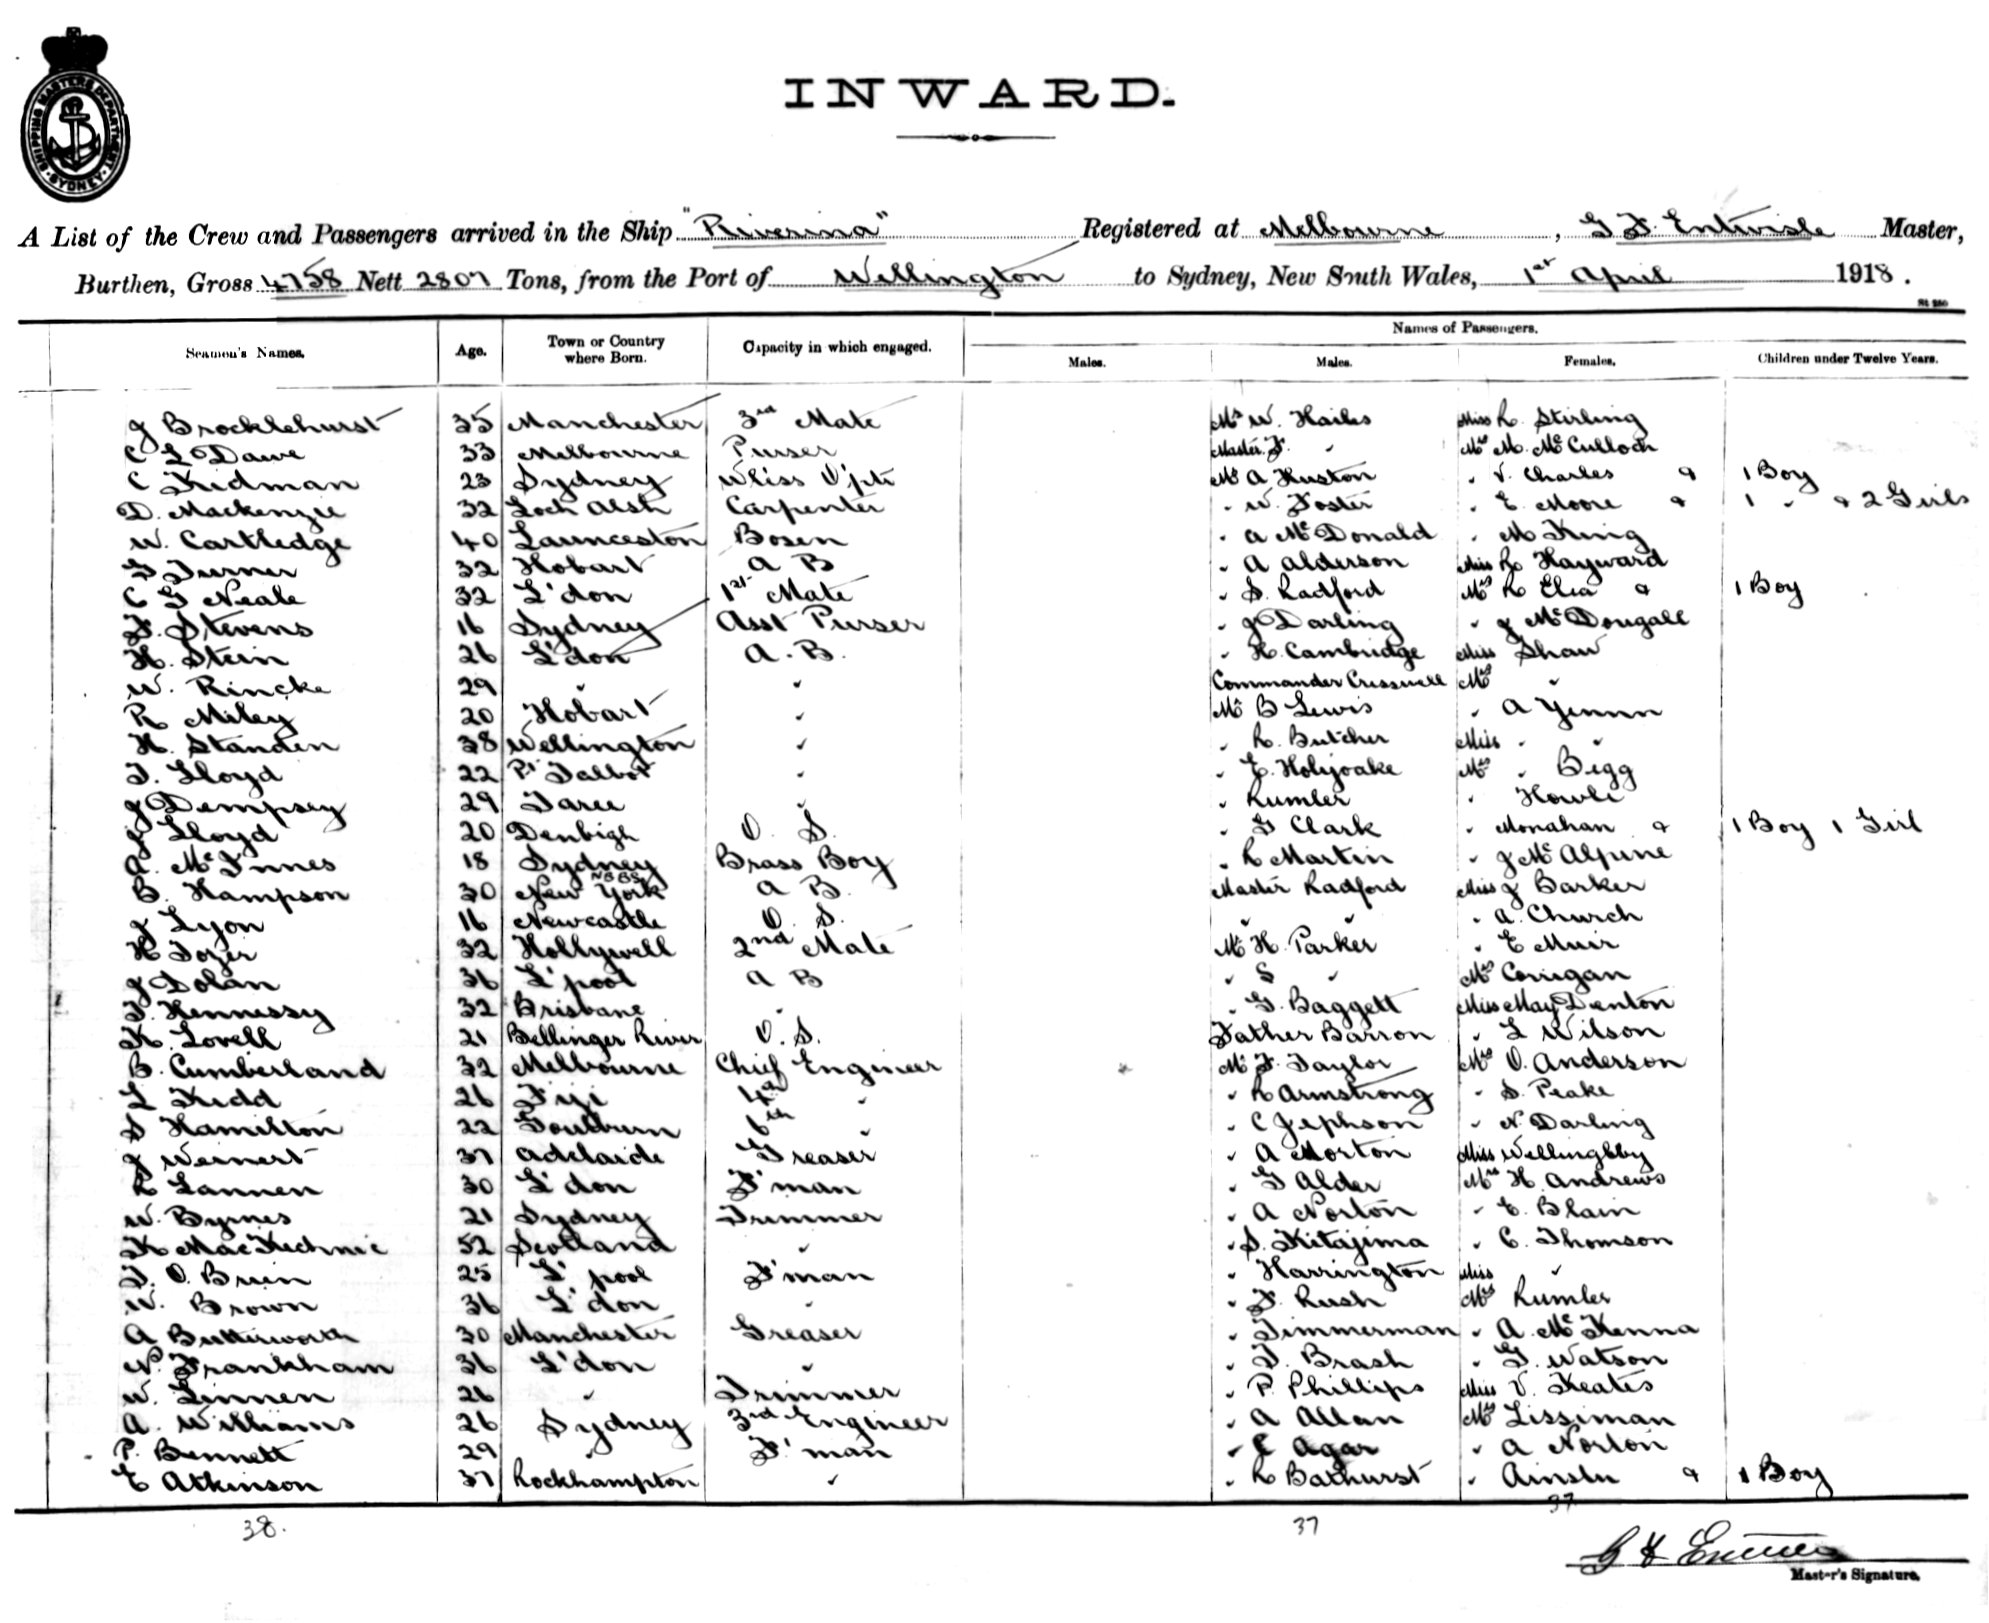 SHIPPING MASTERS DEPARTMENT · SYDNEY ·
INWARD.
A List of the Crew and Passengers arrived in the Ship "Riverina" Registered at Melbourne, G F. Entwisle Master,
Burthen, Gross 4758 Nett 2807 Tons, from the Port of Wellington to Sydney, New South Wales, 1st April 1918.
Names of Passengers.
Seamen's Names. Age. Town or Country where Born. Capacity in which engaged. Males. Males. Females. Children under Twelve Years.
J Brocklehurst 35 Manchester 3rd Mate Mr W. Hailes Miss R. Stirling
C L Dawe 33 Melbourne Purser Master F. " Mrs M. McCulloch
C Kidman 23 Sydney W'liss O'ptr Mr A Huston " V. Charles & 1 Boy
D. Mackenzie 32 Loch Alsh Carpenter " W. Foster " E. Moore & 1 " & 2 Girls
W. Cartledge 40 Launceston Bosen " A McDonald " M King
G Turner 32 Hobart A B " A Alderson Miss R Hayward
C G Neale 32 L'don 1st Mate " S. Radford Mrs R Elia & 1 Boy
F. Stevens 16 Sydney Asst Purser " J Darling " J McDougall
H. Stein 26 L'don A. B. " H. Cambridge Miss Shaw
W. Rincke 29 " " Commander Cresswell Mrs "
R Miley 20 Hobart " Mr B Lewis " A
H. Standen 38 Wellington " " R. Butcher Miss " "
T. Lloyd 22 Pt Talbot " " E. Holyoake Mrs " Begg
J Dempsey 29 Taree " " Rumler " Howle
J Lloyd 20 Denbigh O. S. " G Clark " Monahan & 1 Boy 1 Girl
A. McInnes 18 Sydney Brass Boy " R Martin " J McAlpine
B. Hampson 30 New York A B. Master Radford Miss J Barker
J Lyon 16 Newcastle O. S. " " " A. Church
H Tozer 32 Hollywell 2nd Mate Mr H. Parker " E Muir
J Dolan 36 L'pool A B " S " Mrs Corrigan
T. Hennessy 32 Brisbane " " G. Baggett Miss May Denton
K. Lovell 21 Bellinger River O. S. Father Barron " L Wilson
B. Cumberland 32 Melbourne Chief Engineer Mr F. Taylor Mrs O. Anderson
L Kidd 26 Fiji 4th " " R Armstrong " S. Peake
S Hamilton 22 Goulburn 6th " " C Jephson " N Darling
J Weinert 37 Adelaide Greaser " A Morton Miss
R Lannen 30 L'don F'man " G Alder Mrs H. Andrews
W. Byrnes 21 Sydney Trimmer " A Norton " E. Blain
K MacKechnie 52 Scotland " " S. Kitajima " C. Thomson
T. O. Brien 25 L'pool F'man " Harrington Miss "
W. Brown 36 L'don " " F. Rush Mrs Rumler
A Butterworth 30 Manchester Greaser " Timmerman " A. McKenna
N. Frankham 36 L'don " " T. Brash " G. Watson
W. Linnen 26 " Trimmer " P. Phillips Miss V. Keates
A. Williams 26 Sydney 3rd Engineer " A Allan Mrs Lissiman
P. Bennett 29 " F'man " C Agar " A Norton
E Atkinson 37 Rockhampton " " R Bathurst " Ainslie & 1 Boy
38. 37 37
Master's Signature.